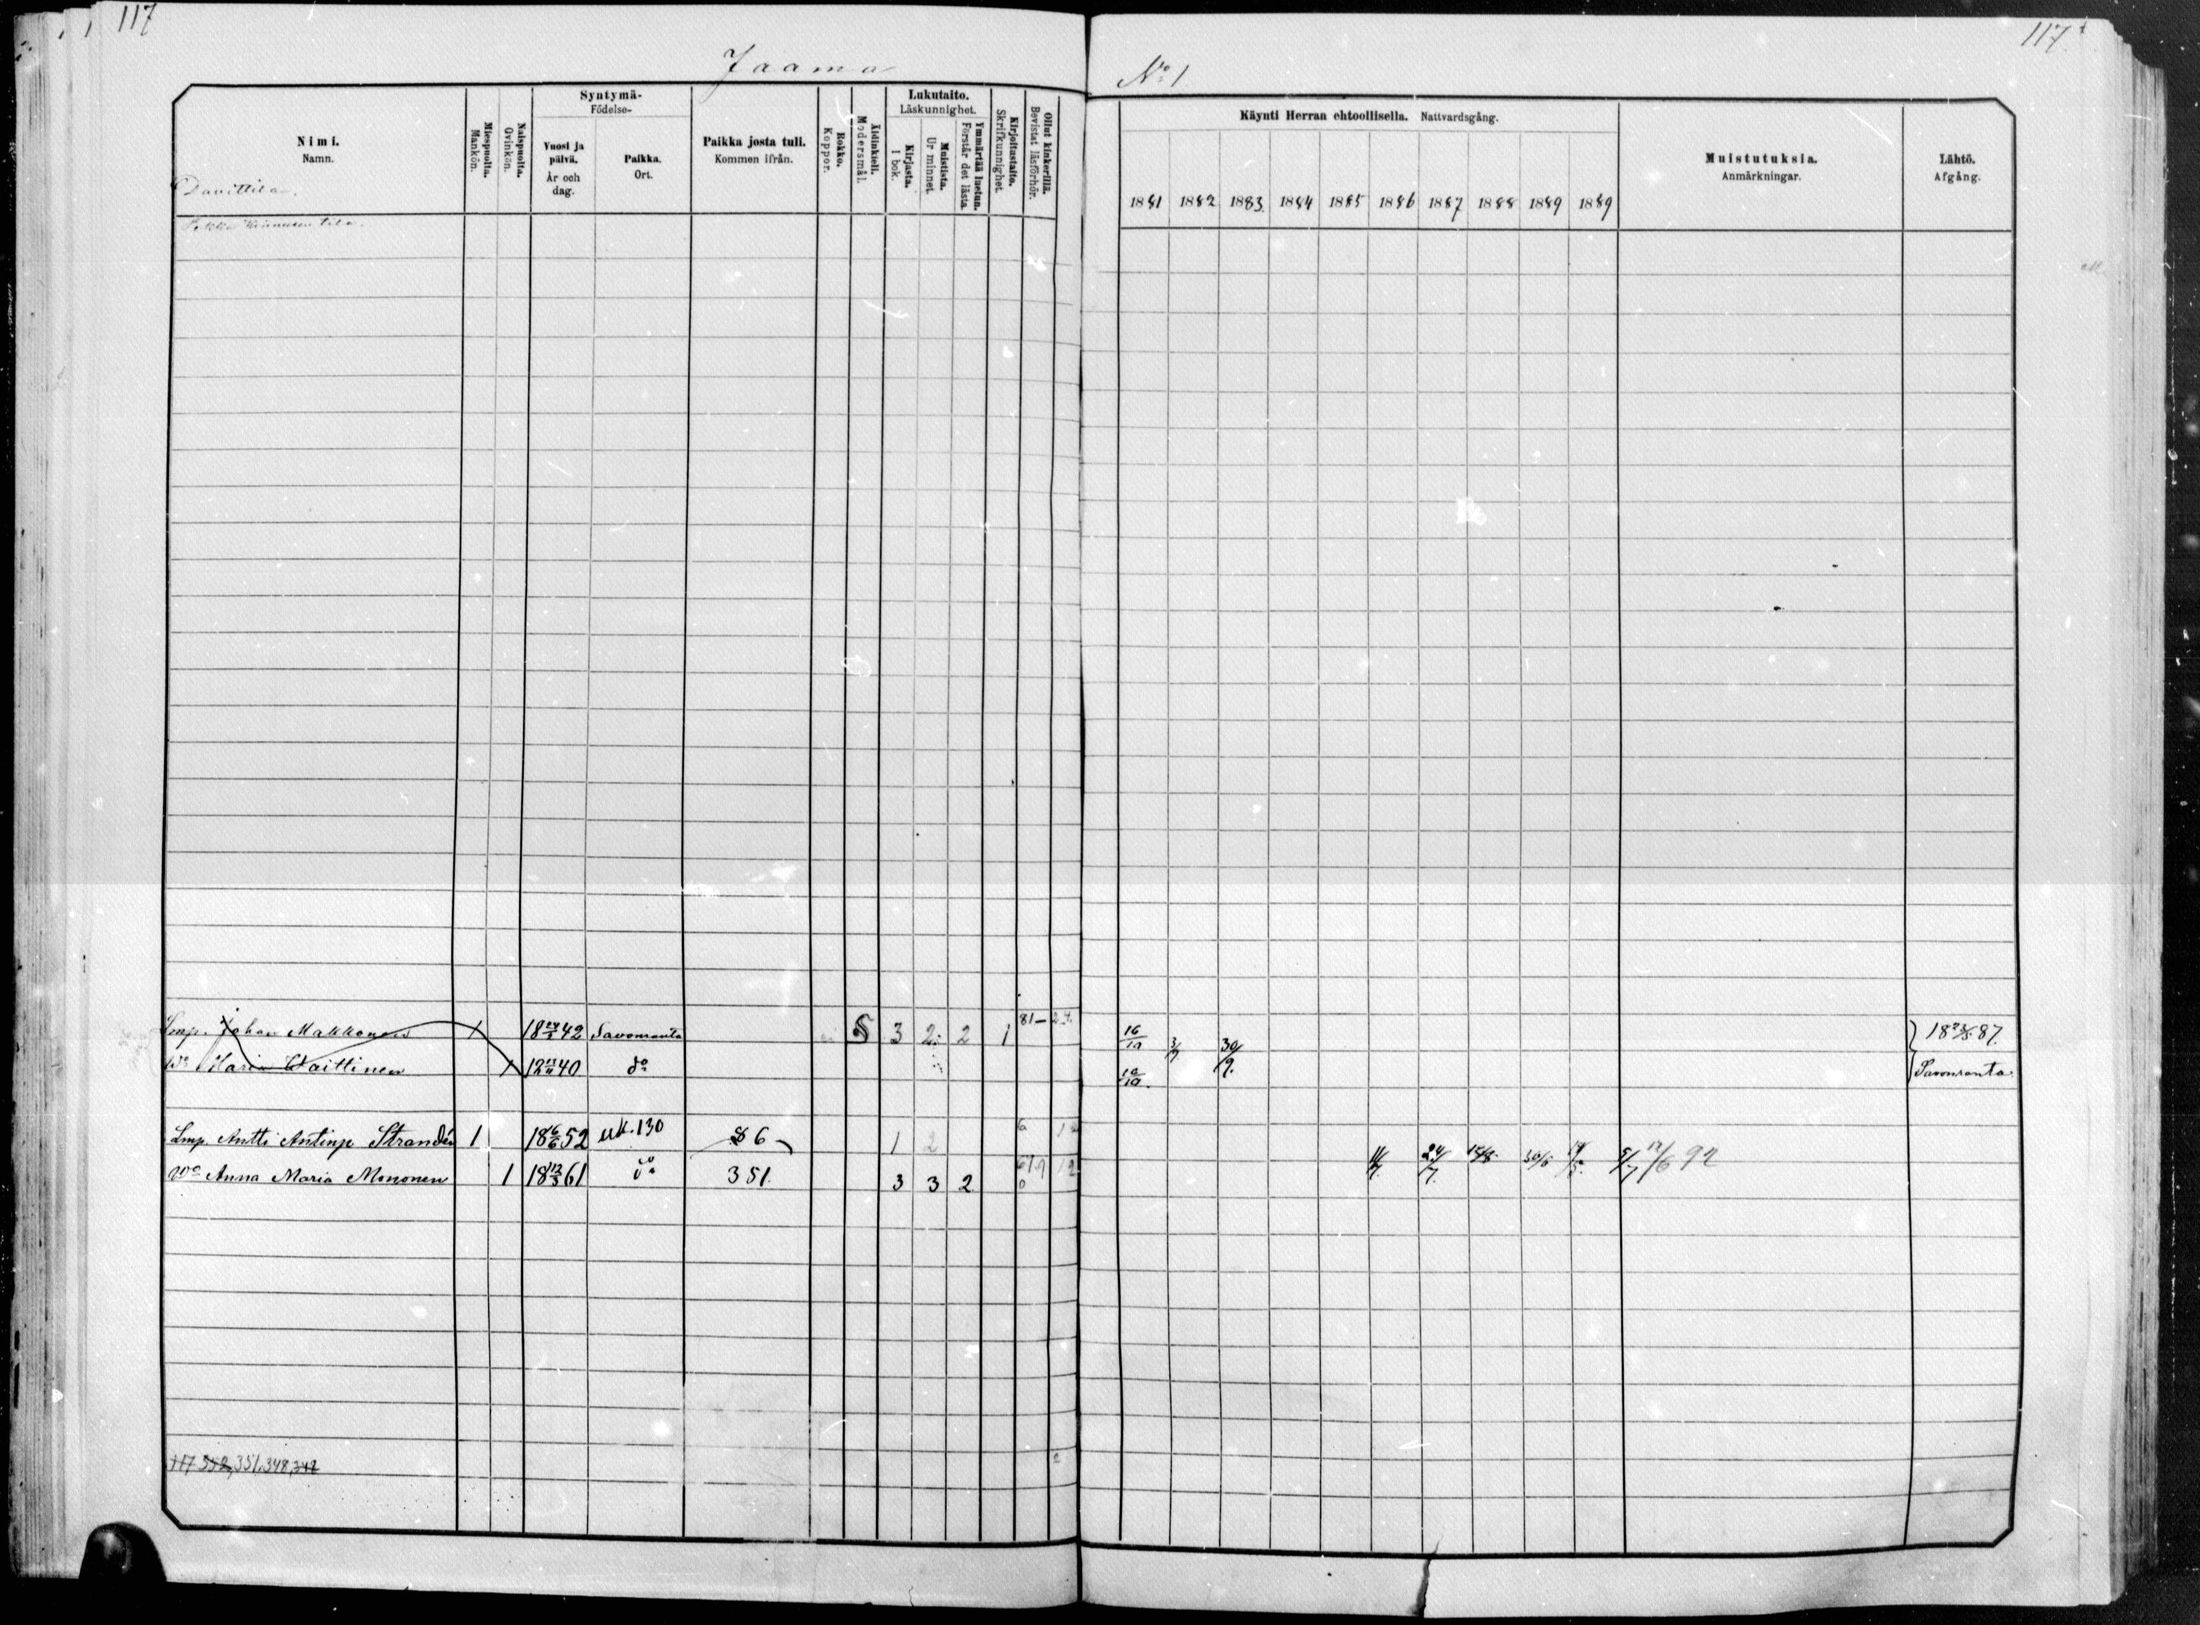 117
117
Jaama
No 1
Nimi.
Namn.
Miespuolta.
Mankön.
Naispuolta.
Qvinkön.
Syntymä-
Födelse-
Vuosi ja päivä.
År och dag.
Paikka.
Ort.
Paikka josta tuli.
Kommen ifrån.
Rokko.
Koppor.
Äidinkieli.
Modersmål.
Lukutaito.
Läskunnighet.
Kirjasta.
I bok.
Muistista.
Ur minnet.
Ymmärtää luetun.
Förstår det lästa.
Kirjoitustaito.
Skrifkunnighet.
Ollut kinkerillä.
Bevistat läsförhör.
Käynti Herran ehtoollisella. Nattvardsgång.
1881 1882 1883 1884 1885 1886 1887 1888 1889 1889
Muistutuksia.
Anmärkningar.
Lähtö.
Afgång.
Davittila.
tila.
Lmp. Johan Makkonen 1 18 24/3 42 Savonranta S 3 2 2 1 81— 16/10 3/9 30/9. 87.
Wo Maria 1 40 do 10/10. Savonranta
Lmp. Antti Antinp Strandén 1 18 6/6 52 uk. 130 86 1 2 6
Wo Anna Maria Mononen 1 18 12/3 61 do 351. 3 3 2 24/7. 30/6 5/7 12/6 92
117 352, 351, 348, 342
2